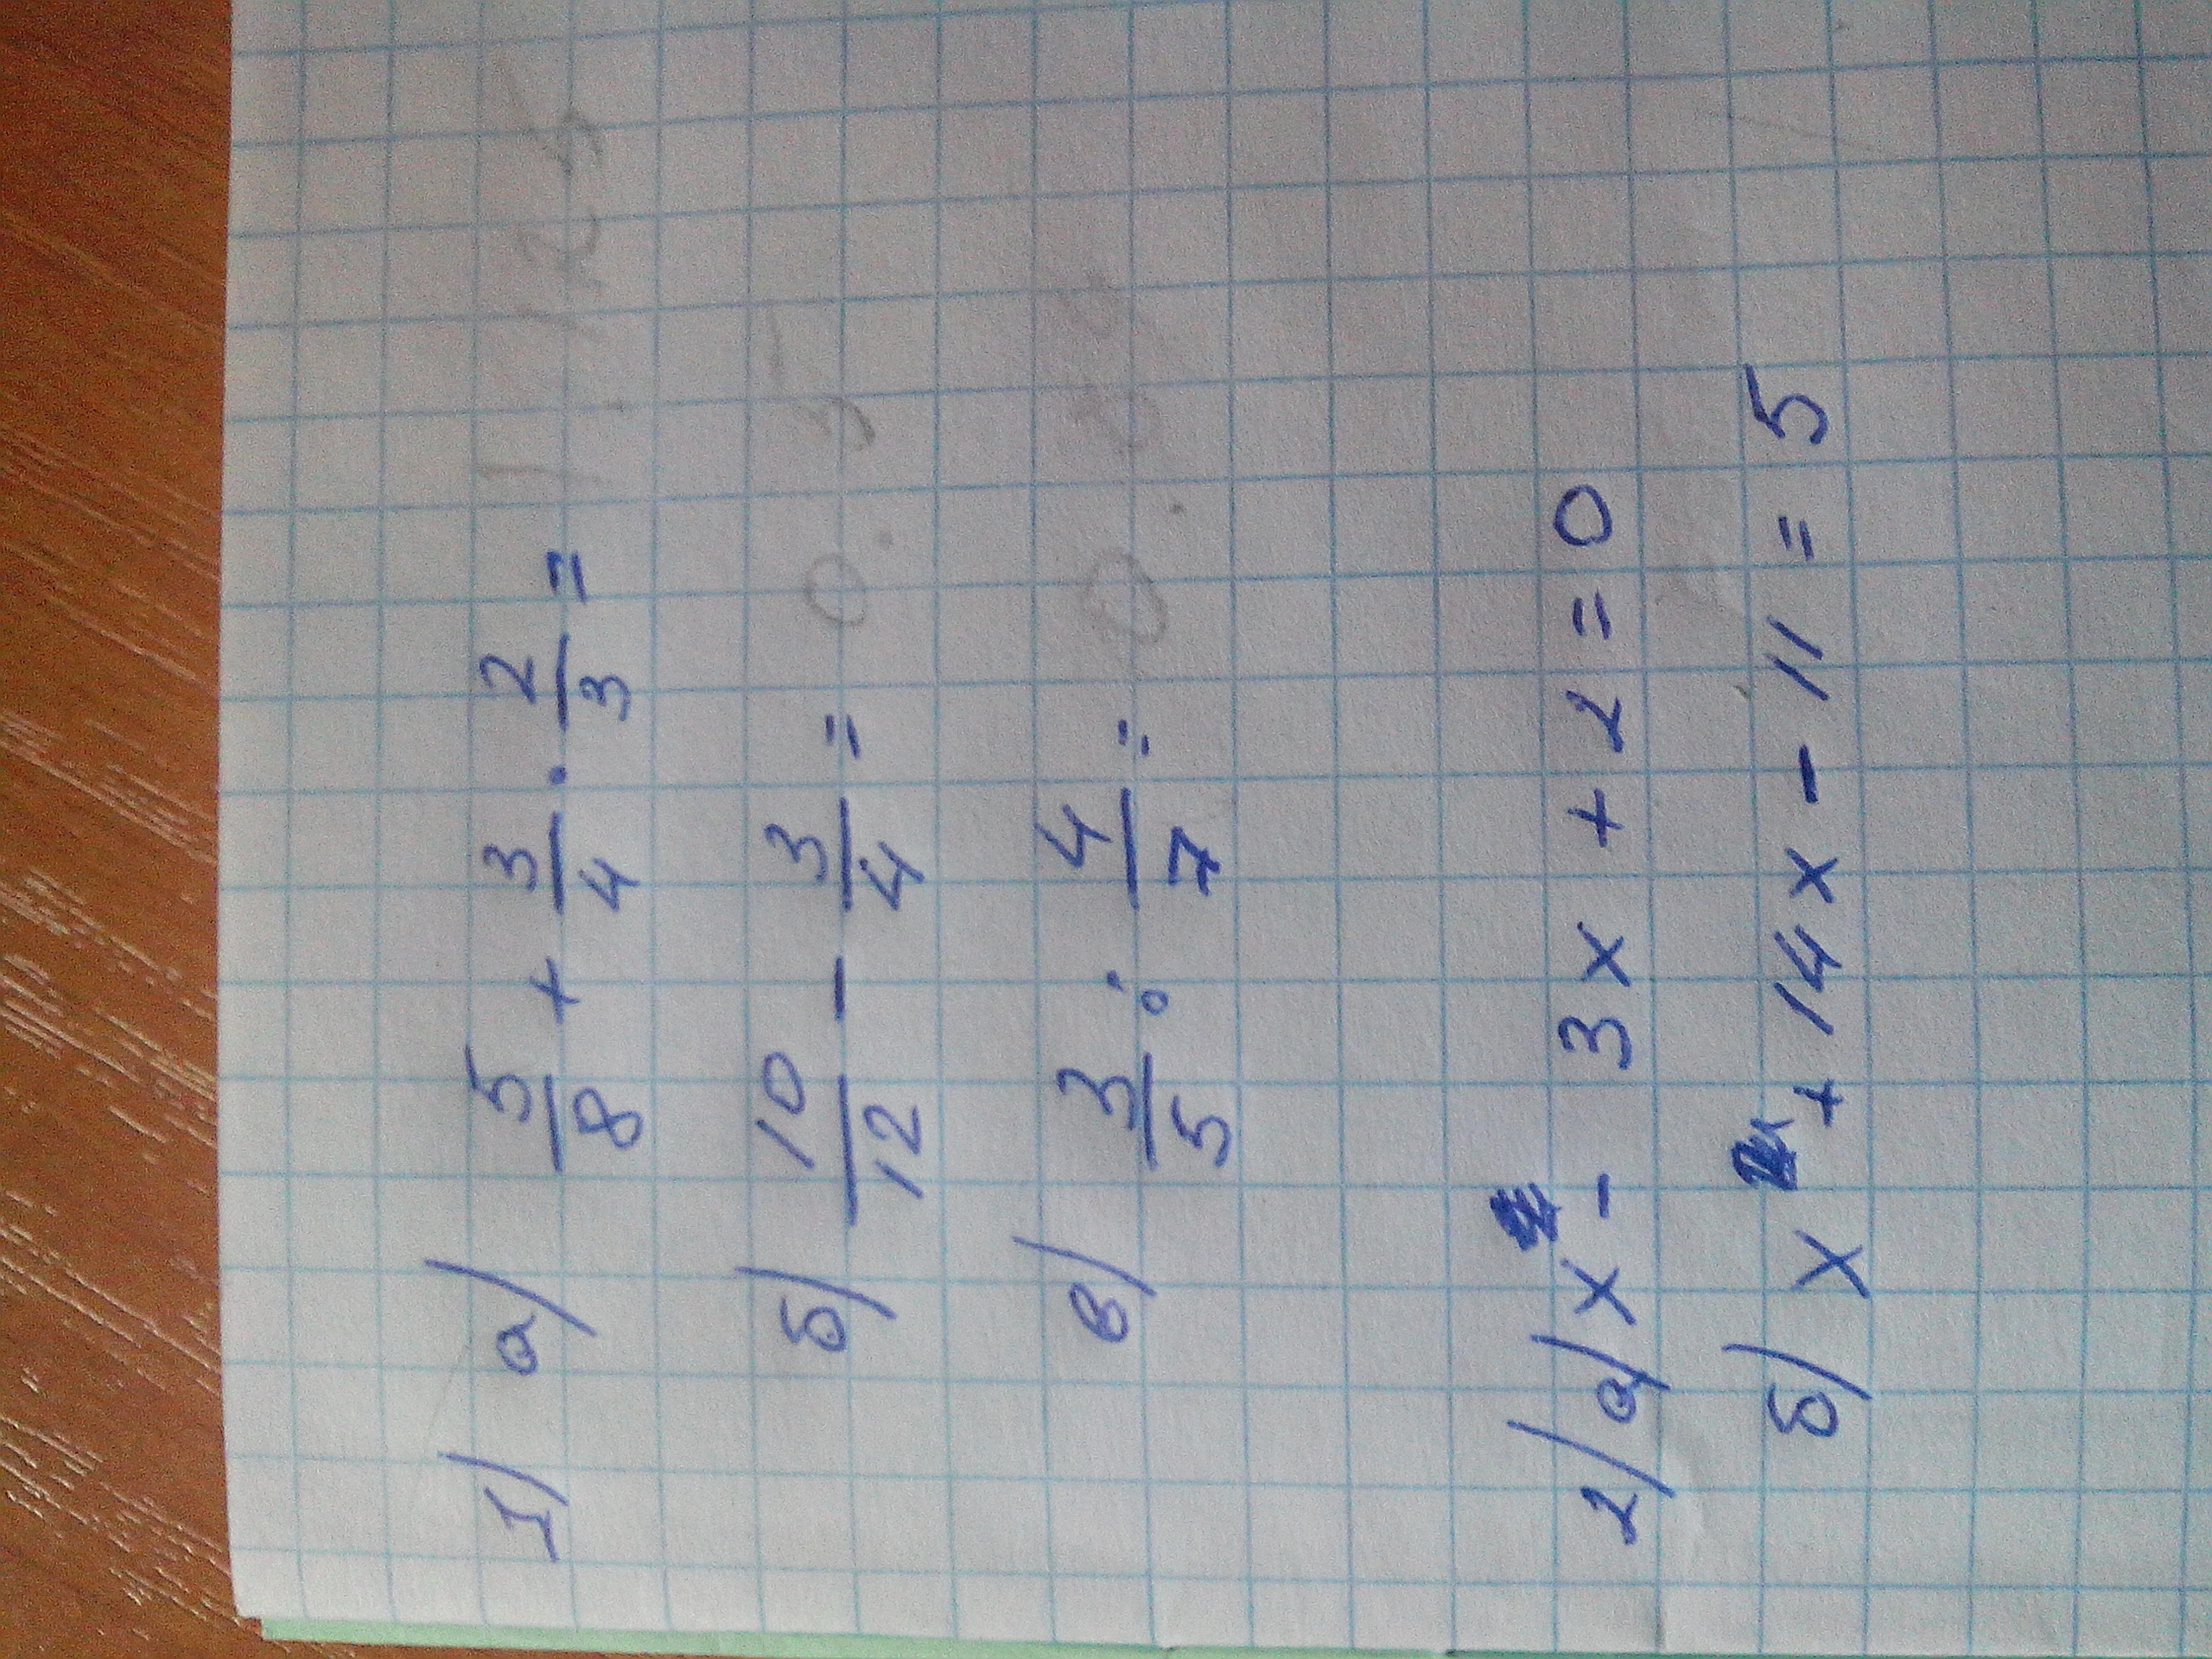 1) а) 5/8 + 3/4 · 2/3 =
б) 10/12 - 3/4 =
в) 3/5 : 4/7 =
2) а) x - 3x + 2 = 0
б) x + 14x - 11 = 5